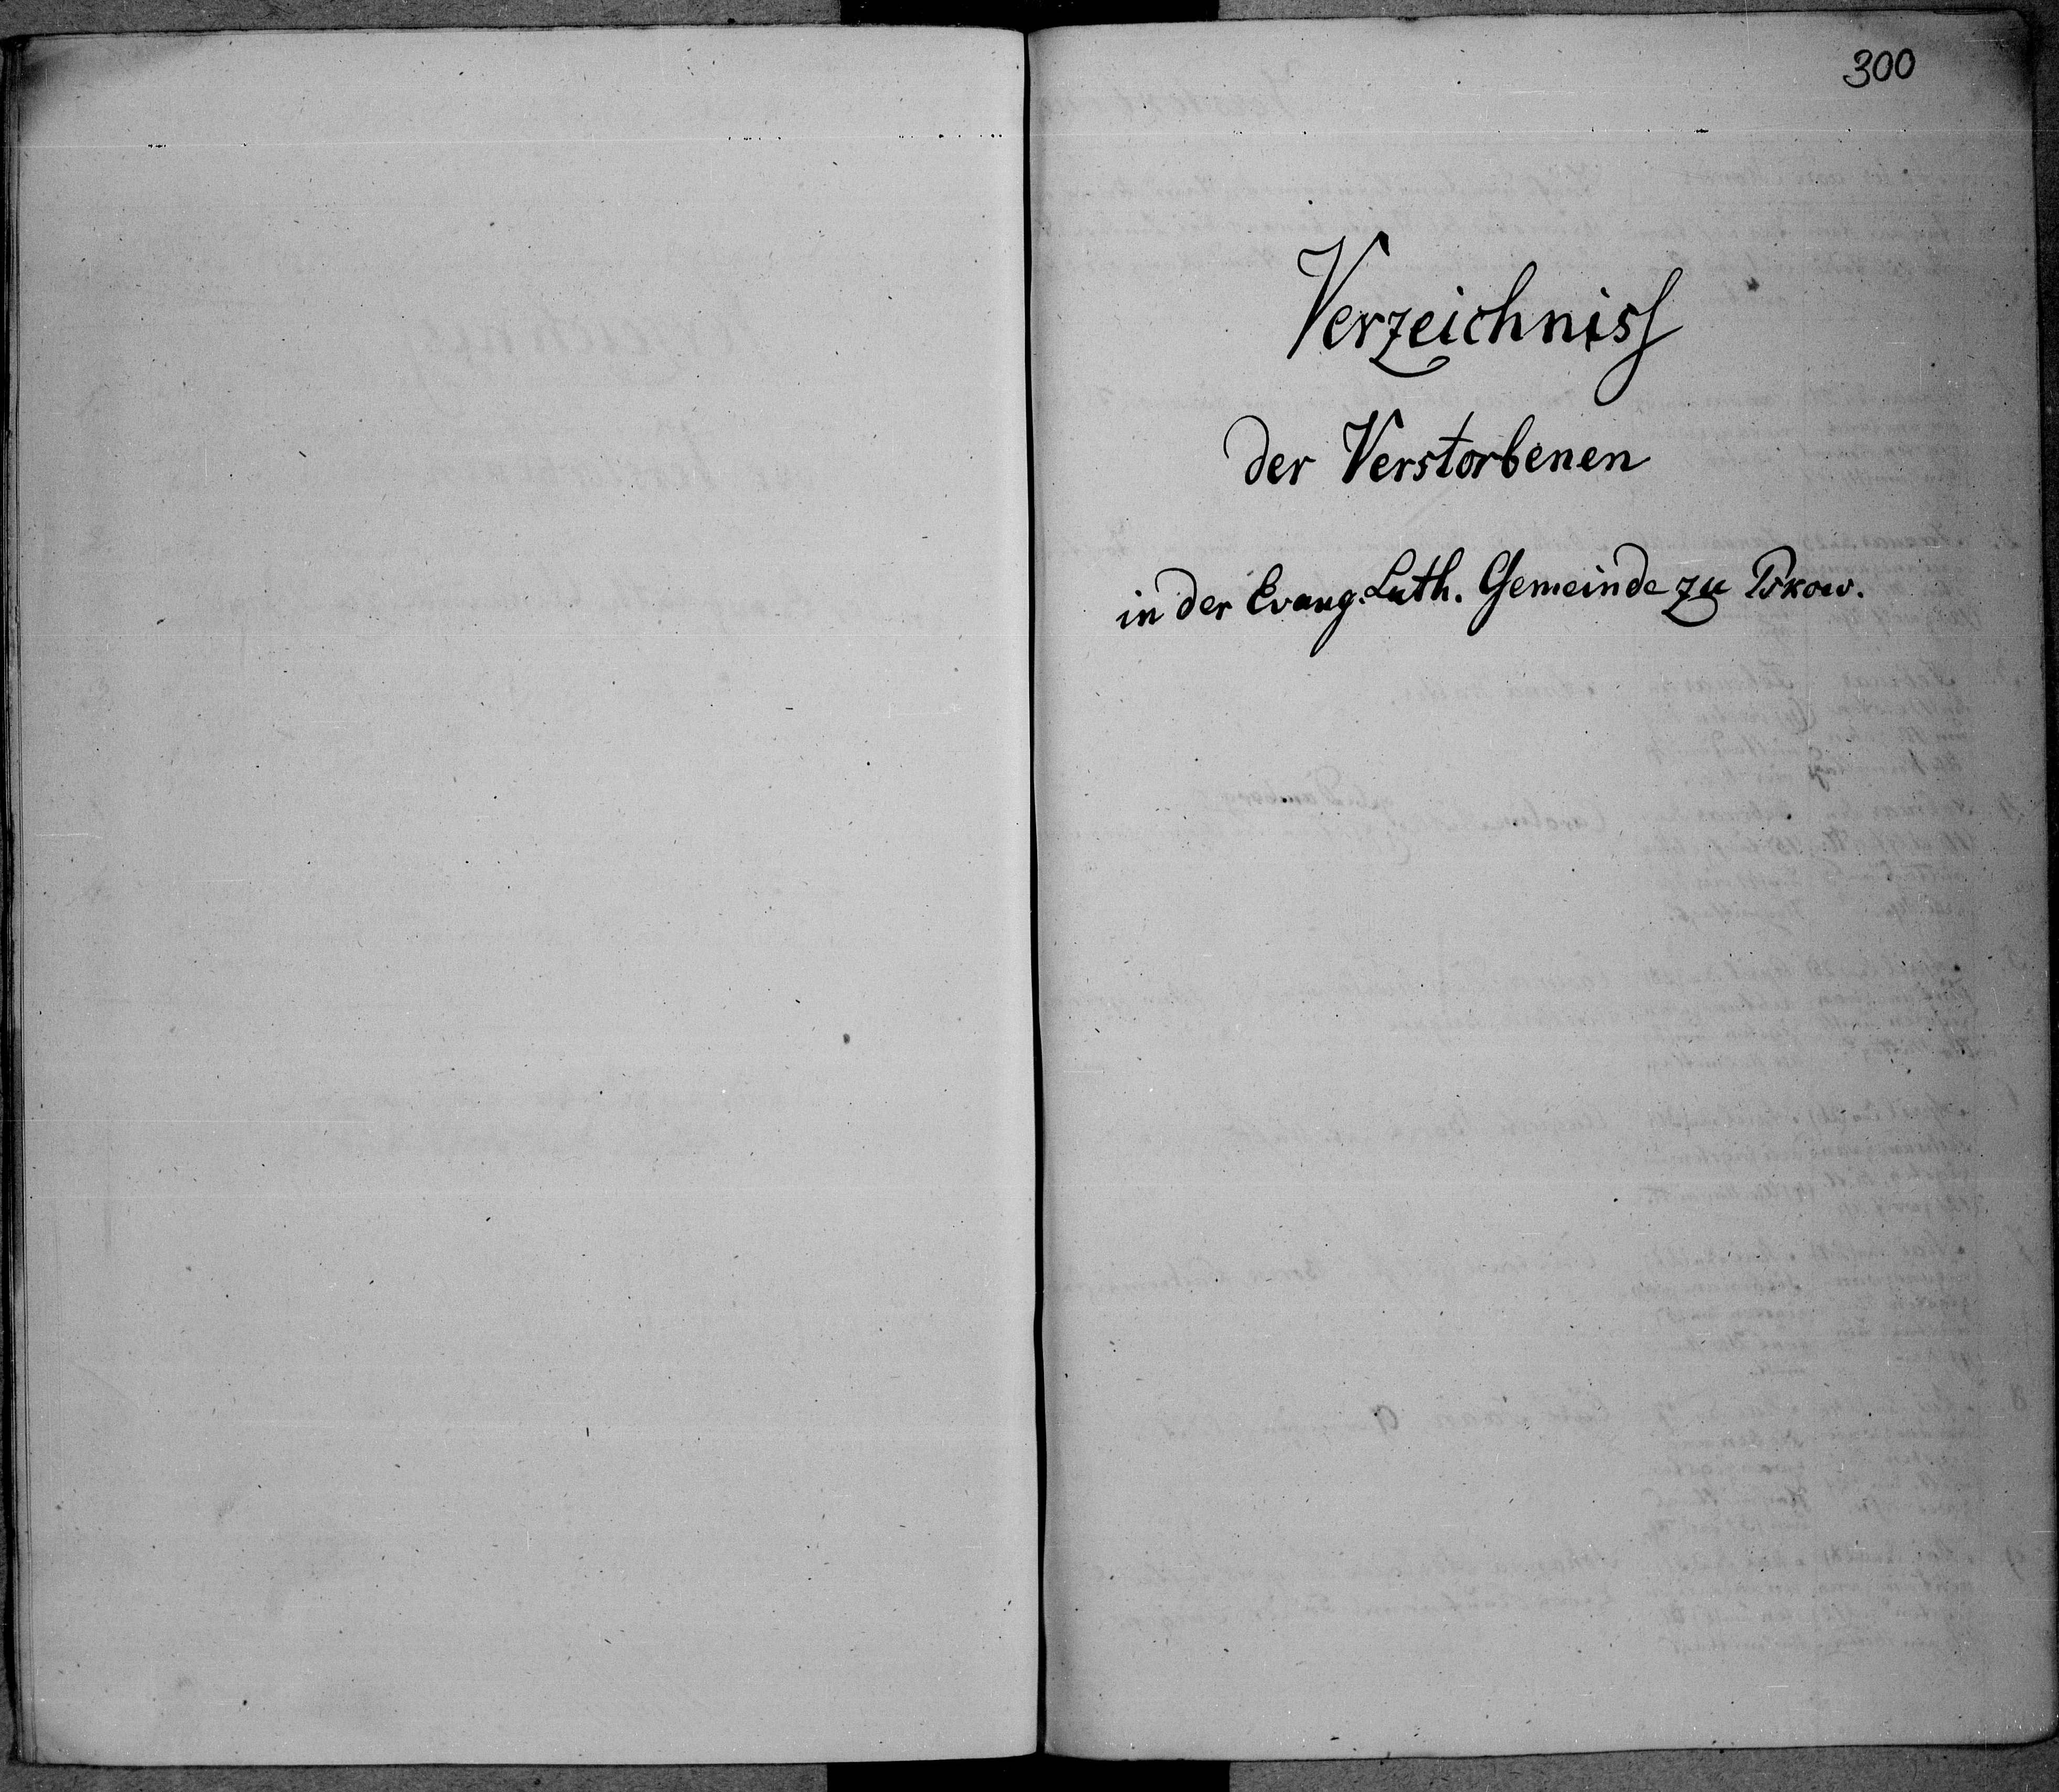 300
Verzeichniss
der Verstorbenen
in der Evang. Luth. Gemeinde zu Pskow.